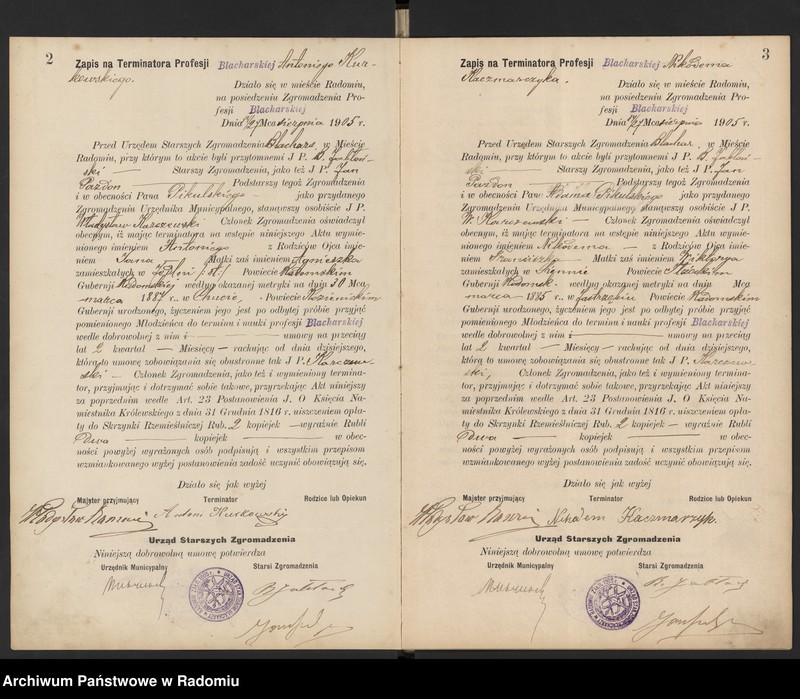 2
Zapis na Terminatora Profesji Blacharskiej Antoniego Kur-
kowskiego.
Działo się w mieście Radomiu,
na posiedzeniu Zgromadzenia Pro-
fesji Blacharskiej
Dnia Mca sierpnia 1905 r.
Przed Urzędem Starszych Zgromadzenia Blachars. w Mieście
Radomiu, przy którym to akcie byli przytomnemi J P. B. Jabłoń-
ski — Starszy Zgromadzenia, jako też J P. Jan
Pazdon — Podstarszy tegoż Zgromadzenia
i w obecności Pana Pikulskiego — jako przydanego
Zgromadzeniu Urzędnika Municypalnego, stanąwszy osobiście J P.
Władysław Karszewski — Członek Zgromadzenia oświadczył
obecnym, iż mając terminatora na wstępie niniejszego Aktu wymie-
nionego imieniem Antoniego z Rodziców Ojca imie-
niem Jana Matki zaś imieniem Agnieszka
zamieszkałych w Powiecie Radomskim
Gubernji Radomskiej według okazanej metryki na dniu 30 Mca
marca 1887 r., w Powiecie Kozienickim
Gubernji urodzonego, życzeniem jego jest po odbytej próbie przyjąć
pomienionego Młodzieńca do terminu i nauki profesji Blacharskiej
wedle dobrowolnej z nim i — umowy na przeciąg
lat 2 kwartał — Miesięcy — rachując od dnia dzisiejszego,
którą to umowę zobowiązania się obustronne tak J P. Karszew-
ski — Członek Zgromadzenia, jako też i wymieniony termina-
tor, przyjmując i dotrzymać sobie takowe, przyrzekając Akt niniejszy
za poprzednim wedle Art. 23 Postanowienia J. O Księcia Na-
miestnika Królewskiego z dnia 31 Grudnia 1816 r. uiszczeniem opła-
ty do Skrzynki Rzemieślniczej Rub. 2 kopiejek — wyraźnie Rubli
Dwa — kopiejek — w obec-
ności powyżej wyrażonych osób podpisują i wszystkim przepisom
wzmiankowanego wyżej postanowienia zadość uczynić obowiązują się.
Działo się jak wyżej
Majster przyjmujący Terminator Rodzice lub Opiekun
Antoni Kurkowski
Urząd Starszych Zgromadzenia
Niniejszą dobrowolną umowę potwierdza
Urzędnik Municypalny Starsi Zgromadzenia
3
Zapis na Terminatora Profesji Blacharskiej Nikodema
Kaczmarczyka.
Działo się w mieście Radomiu,
na posiedzeniu Zgromadzenia Pro-
fesji Blacharskiej
Dnia Mca sierpnia 1905 r.
Przed Urzędem Starszych Zgromadzenia Blachar. w Mieście
Radomiu, przy którym to akcie byli przytomnemi J P. B. Jabłoń-
ski Starszy Zgromadzenia, jako też J P. Jan
Pazdon — Podstarszy tegoż Zgromadzenia
i w obecności Pana Pikulskiego — jako przydanego
Zgromadzeniu Urzędnika Municypalnego, stanąwszy osobiście J P.
W. Karszewski — Członek Zgromadzenia oświadczył
obecnym, iż mając terminatora na wstępie niniejszego Aktu wymie-
nionego imieniem Nikodema — z Rodziców Ojca imie-
niem Franciszka — Matki zaś imieniem Wiktorya
zamieszkałych w Powiecie
Gubernji Radomsk. według okazanej metryki na dniu Mca
marca 1885 r., w Jastrzębiu Powiecie Radomskim
Gubernji urodzonego, życzeniem jego jest po odbytej próbie przyjąć
pomienionego Młodzieńca do terminu i nauki profesji Blacharskiej
wedle dobrowolnej z nim i — umowy na przeciąg
lat 2 kwartał — Miesięcy — rachując od dnia dzisiejszego,
którą to umowę zobowiązania się obustronne tak J P. Karszew-
ski, Członek Zgromadzenia, jako też i wymieniony termina-
tor, przyjmując i dotrzymać sobie takowe, przyrzekając Akt niniejszy
za poprzednim wedle Art. 23 Postanowienia J. O Księcia Na-
miestnika Królewskiego z dnia 31 Grudnia 1816 r. uiszczeniem opła-
ty do Skrzynki Rzemieślniczej Rub. 2 kopiejek — wyraźnie Rubli
Dwa — kopiejek — w obec-
ności powyżej wyrażonych osób podpisują i wszystkim przepisom
wzmiankowanego wyżej postanowienia zadość uczynić obowiązują się.
Działo się jak wyżej
Majster przyjmujący Terminator Rodzice lub Opiekun
Nikodem Kaczmarzyk.
Urząd Starszych Zgromadzenia
Niniejszą dobrowolną umowę potwierdza
Urzędnik Municypalny Starsi Zgromadzenia
Archiwum Państwowe w Radomiu